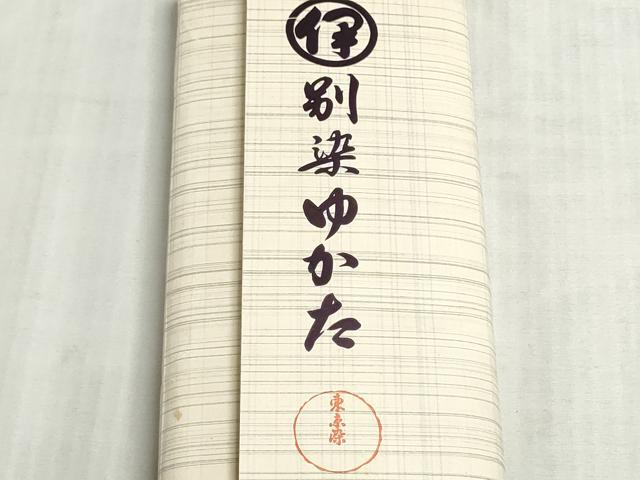 伊
別染ゆかた
東京染